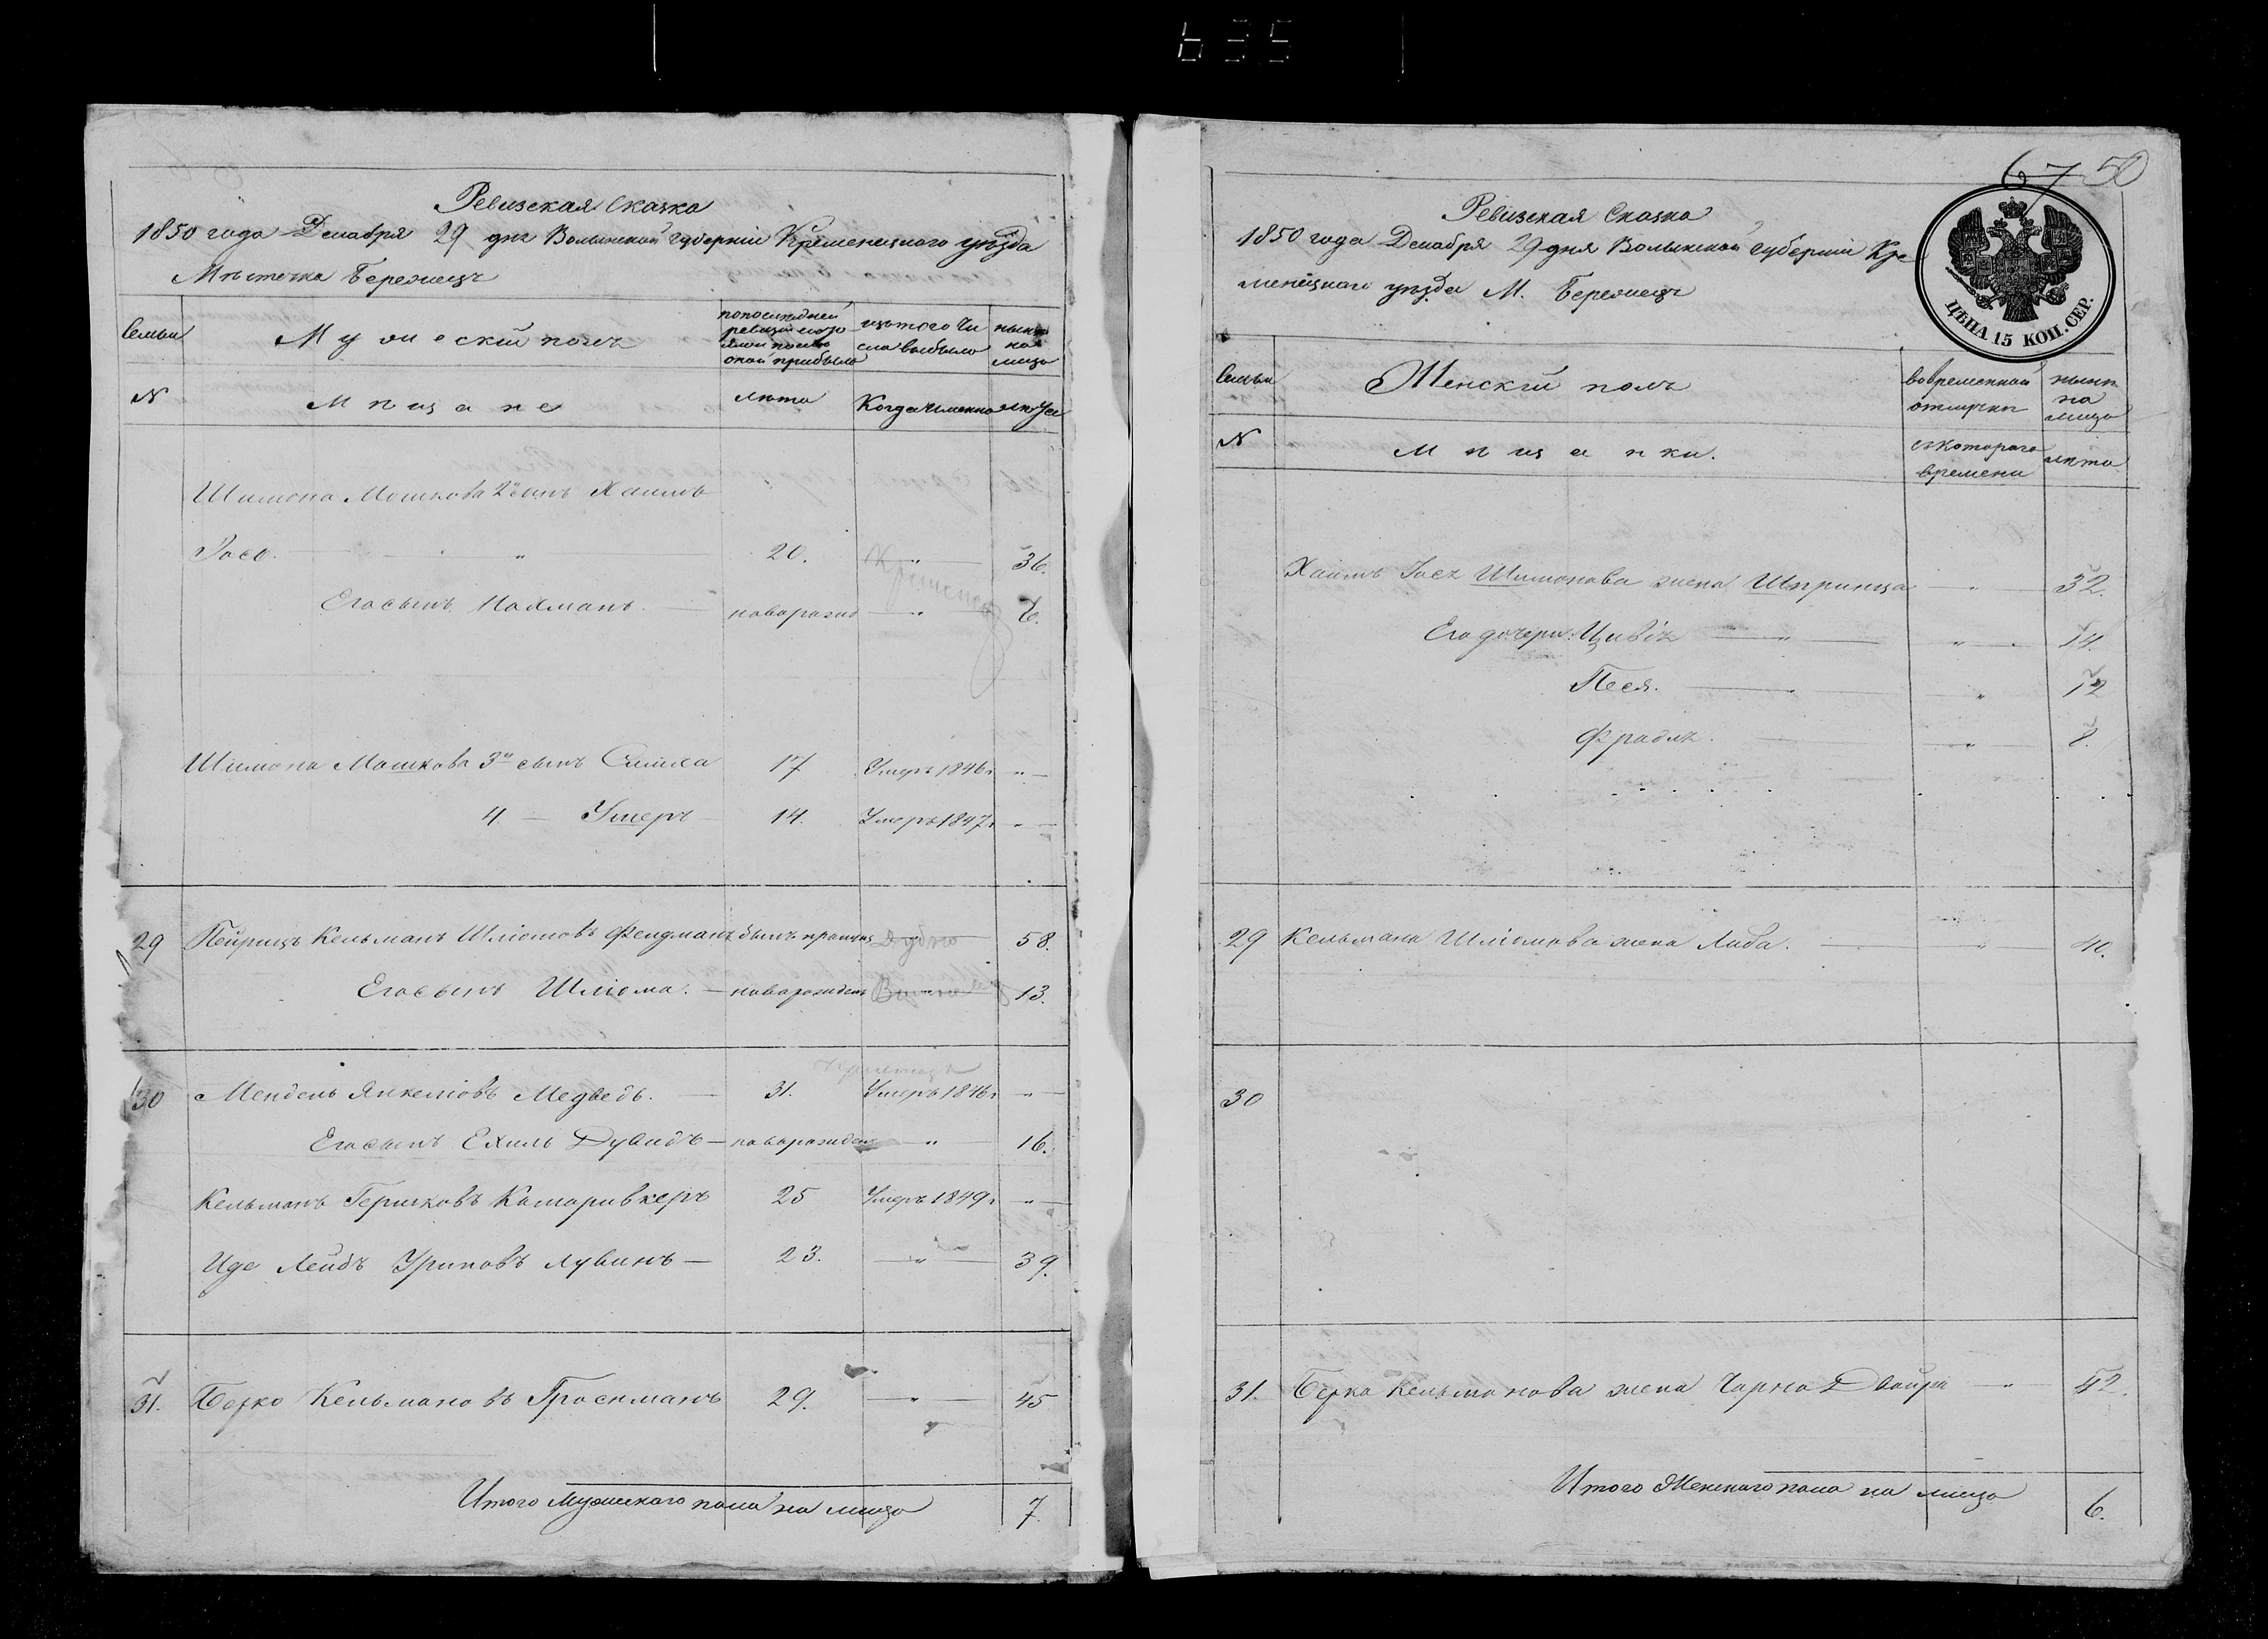 635
Ревизская Сказка
1850 года Декабря 29 дня Волынской Губерніи Кременецкаго уѣзда
Мѣстечка Бережецъ
Семьи
Мужескій полъ
по последней ревизіи состояло и после оной прибыло
изъ того числа выбыло
ныне на лицо
N
Мѣщане
лѣта
Когда именно
лѣта
Шимона Мошкова 2й сынъ Хаимъ
Іось. — " 20. " 36.
Его сынъ Нахманъ. — новорожд — " 6.
Шимона Мошкова 3й сынъ Симха 17 Умеръ 1846г "
4 — Умеръ 14. Умеръ 1847г "
29 Пейрицъ Кельманъ Шліомовъ Фелдманъ былъ 58.
Дубно
Его сынъ Шліома. — новорожденъ 13.
30 Мендель Янкелiовъ Медведь. — 31. Умеръ 1846г "
Его сынъ Ехиль Дувидъ — новорожден " 16.
Кельманъ Гершковъ Камаривкеръ 25 Умеръ 1849г "
Иде Лейбъ Униковъ Лувинъ — 23. " 39.
31. Берко Кельмановъ Гросманъ 29. " 45
Итого Мужескаго пола на лицо 7.
67 50
ЦѢНА 15 КОП. СЕР.
Ревизская Сказка
1850 года Декабря 29 дня Волынской Губерніи Кре
менецкаго уѣзда М. Бережецъ
Семьи
Женскій полъ
во временной отлучке
ныне на лицо
N
Мѣщанки.
съ котораго времени
лѣта
Хаимъ Іося Шимонова жена Шпринца " 32.
Его дочери: Цивіѧ " " 14.
Песя. " " 12
Фрадля. " 8.
29 Кельмана Шліомова жена Либа. " 40.
30
31. Берка Кельманова жена Чарна Двойра " 42.
Итого Женскаго пола на лицо 6.